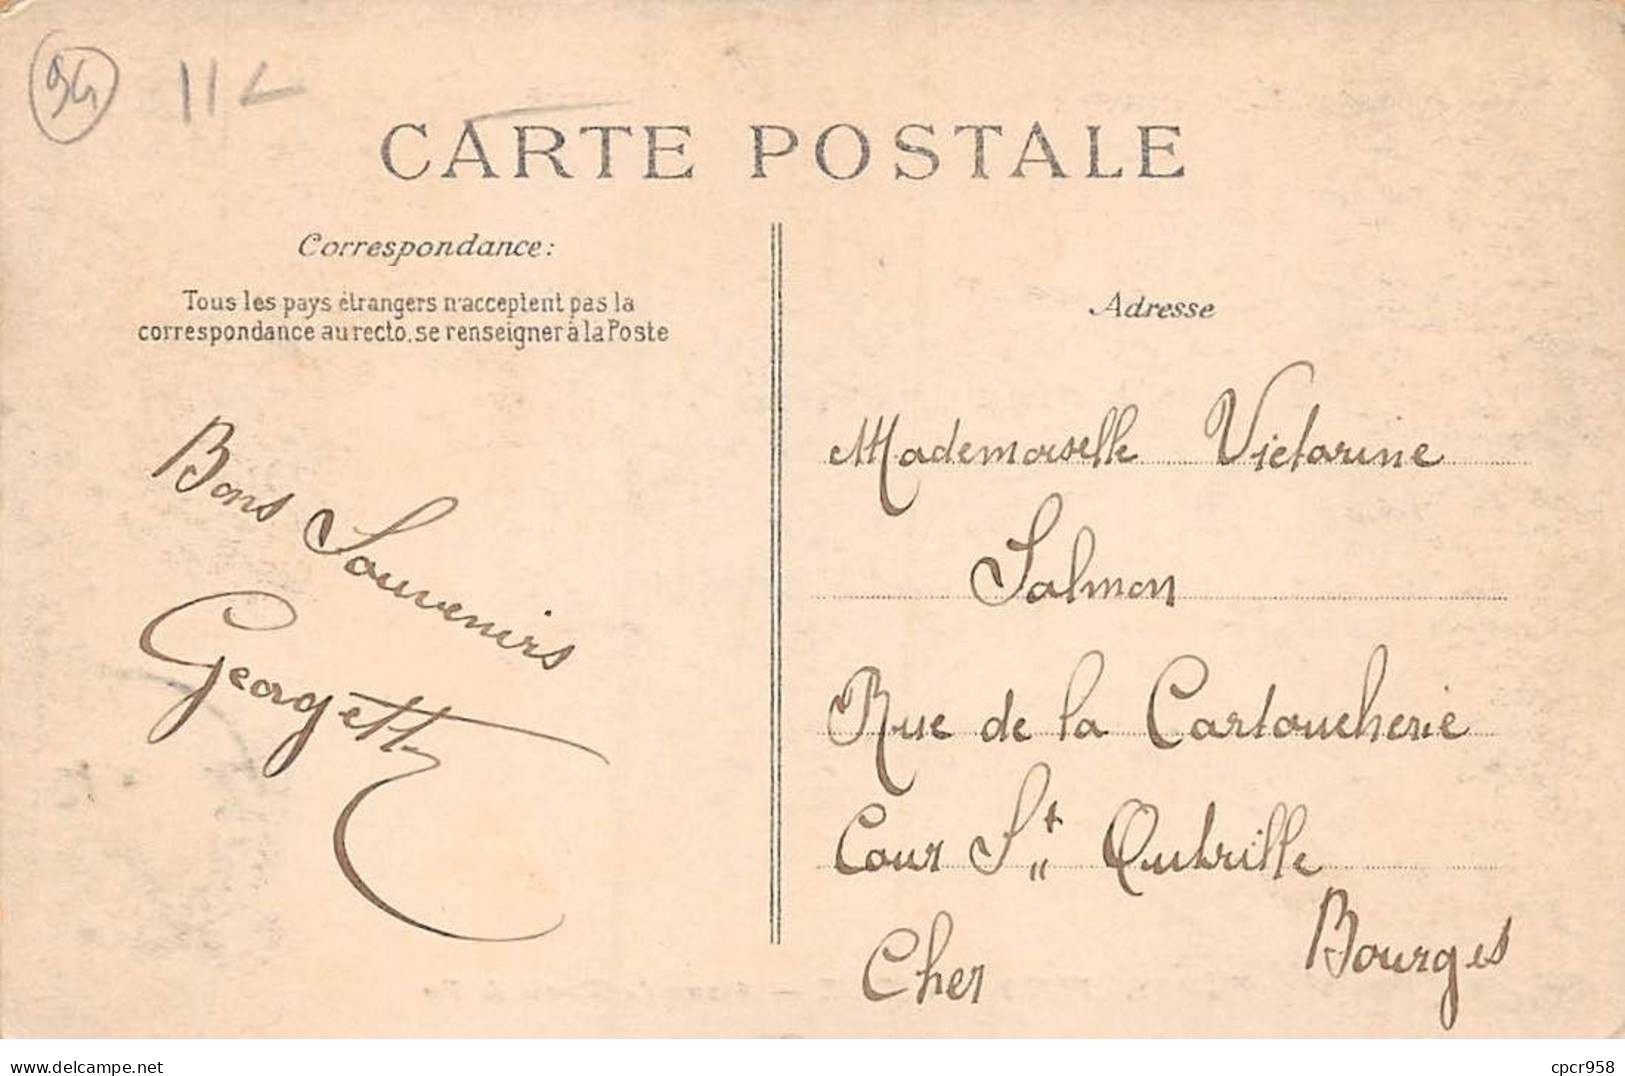 94
CARTE POSTALE
Correspondance:
Tous les pays étrangers n'acceptent pas la
correspondance au recto, se renseigner à la Poste
Bons Souvenirs
Georgette
Adresse
Mademoiselle Victorine
Salmon
Rue de la Cartoucherie
Cour St Outrille
Bourges
Cher
delcampe.net
cpcr958